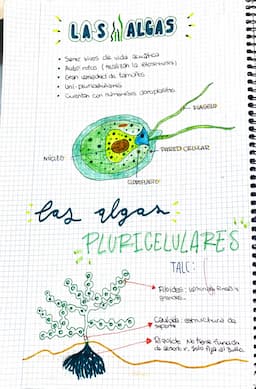 LAS ALGAS
Seres vivos de vida acuática
Autótrofos (realizan la fotosíntesis)
Gran variedad de tamaños
Uni-pluricelulares
Cuentan con numerosos cloroplastos
FLAGELO
PARED CELULAR
NÚCLEO
CLOROPLASTO
las algas
PLURICELULARES
TALO:
Filoides: láminas finas y
grandes.
Cauloide: estructura de
soporte
Rizoide: No tiene función
de absorver. Solo fija al suelo.